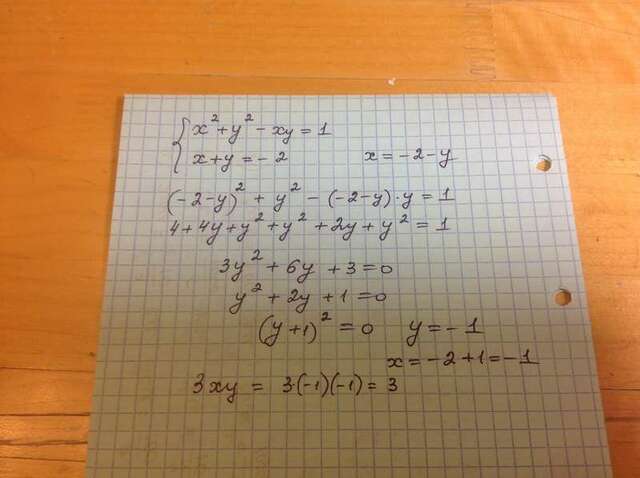 x² + y² - xy = 1
x + y = - 2 x = - 2 - y
(- 2 - y)² + y² - (- 2 - y) · y = 1
4 + 4y + y² + y² + 2y + y² = 1
3y² + 6y + 3 = 0
y² + 2y + 1 = 0
(y + 1)² = 0 y = - 1
x = - 2 + 1 = - 1
3xy = 3·(-1)(-1) = 3